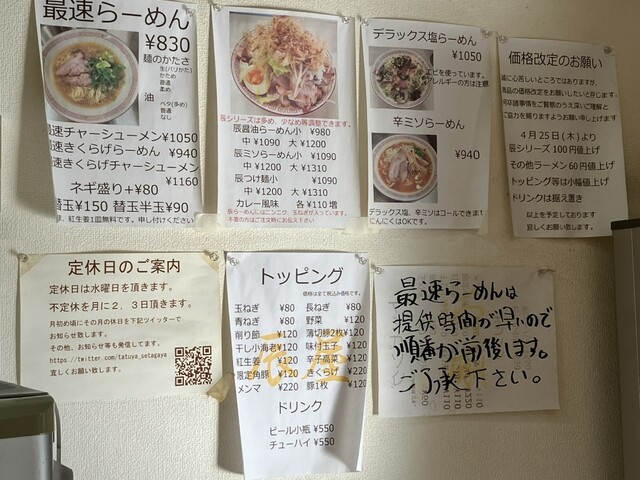 最速らーめん
¥830
麺のかたさ
生(バリかた)
かため
普通
柔め
油
ベタ(多め)
普通
なし
速チャーシューメン¥1050
速きくらげらーめん ¥940
速きくらげチャーシューメン
¥1160
ネギ盛り+¥80
替玉¥150 替玉半玉¥90
紅生姜1皿無料です。申し付けください
辰シリーズは多め、少なめ等調整できます。
辰醤油らーめん小 ¥980
中 ¥1090 大 ¥1200
辰ミソらーめん小 ¥1090
中 ¥1200 大 ¥1310
辰つけ麺小 ¥1090
中 ¥1200 大 ¥1310
カレー風味 各¥110増
辰らーめんにはニンニク、玉ねぎが入っています。
不要の方はご注文時にお伝え下さい
デラックス塩らーめん
¥1050
エビを使っています。
アレルギーの方は注意
辛ミソらーめん
¥940
デラックス塩、辛ミソはコールできま
にんにくはOKです。
価格改定のお願い
に心苦しいところではありますが、
商品の価格改定をお願いしたいと存じます。
何卒諸事情をご賢察のうえ深いご理解と
ご協力を賜りますようお願い申し上げます。
4月25日(木)より
辰シリーズ 100円値上げ
その他ラーメン60円値上げ
トッピング等は小幅値上げ
ドリンクは据え置き
以上を予定しております
宜しくお願い致します。
定休日のご案内
定休日は水曜日を頂きます。
不定休を月に2.3日頂きます。
月初め頃にその月の休日を下記ツイッターで
お知らせ致します。
その他、お知らせ等も発信してます。
https://twitter.com/tatuya_setagaya
宜しくお願い致します。
トッピング
価格は全て税込み価格です。
玉ねぎ ¥80 長ねぎ ¥80
青ねぎ ¥80 野菜 ¥120
削り節 ¥120 薄切豚2枚¥120
干し小海老¥120 味付玉子 ¥120
紅生姜 ¥120 辛子高菜 ¥120
限定角豚¥120 きくらげ ¥220
メンマ ¥220 豚1枚 ¥120
ドリンク
ビール小瓶 ¥550
チューハイ ¥550
最速らーめんは
提供時間が早いので
順番が前後します。
ご了承下さい。